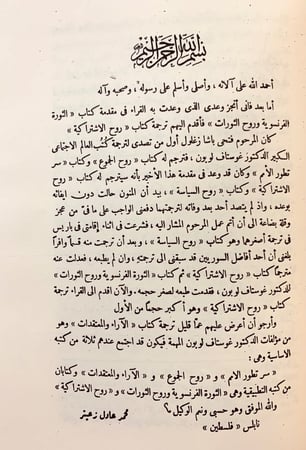 بسم الله الرحمن الرحيم
أحمد الله على آلائه ، وأصلى وأسلم على رسوله ، وصحبه وآله
أما بعد فانى أنجز وعدى الذى وعدت به القراء فى مقدمة كتاب « الثورة
الفرنسوية وروح الثورات » فأقدم اليهم ترجمة كتاب « روح الاشتراكية »
كان المرحوم فتحى باشا زغلول أول من تصدى لترجمة كتب العالم الاجتماعى
الكبير الدكتور غوستاف لوبون ، فترجم له كتاب « روح الجموع » وكتاب « سر
تطور الأمم » وكان قد وعد فى مقدمة هذا الأخير بأنه سيترجم له كتاب « روح
الاشتراكية » وكتاب « روح السياسة » ، بيد أن المنون حالت دون ايفائه
بوعده ، واذ لم يتصد أحد بعد وفاته لترجمتهما دفعنى الواجب على ما فىّ من عجز
وقلة بضاعة الى أن أتم عمل المرحوم المشار اليه ، فشرعت فى اثناء إقامتى فى باريس
فى ترجمة أصغرهما وهو كتاب « روح السياسة » ، وبعد أن ترجمت منه قسماً وافراً
بلغنى أن أحد أفاضل السوريين قد سبقنى الى ترجمته ، وان لم يطبعه ، فعدلت عنه
مترجماً كتاب « روح الاشتراكية » ثم كتاب « الثورة الفرنسوية وروح الثورات »
للدكتور غوستاف لوبون ، فقدمت طبعه لصغر حجمه . والآن اقدم الى القراء ترجمة
كتاب « روح الاشتراكية » وهو أكبر حجماً من الأول
وأرجو أن أعرض عليهم عما قليل ترجمة كتاب « الآراء والمعتقدات » وهو
من مؤلفات الدكتور غوستاف لوبون المهمة فيكون قد اجتمع عندهم ثلاثة من كتبه
الاساسية وهى :
« سر تطور الامم » و « روح الجموع » و « الآراء والمعتقدات » وكتابان
من كتبه التطبيقية وهى « الثورة الفرنسوية وروح الثورات » و « روح الاشتراكية »
والله الموفق وهو حسبى ونعم الوكيل ؟
محمد عادل زعيتر
نابلس « فلسطين »